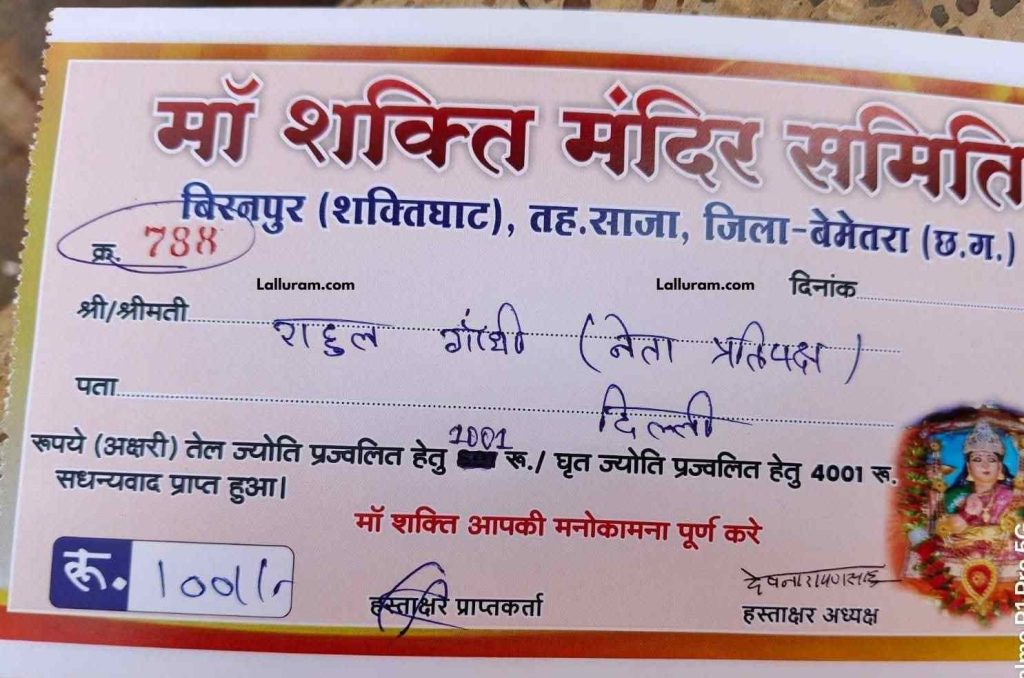 माँ शक्ति मंदिर समिति
बिस्नपुर (शक्तिघाट), तह.साजा, जिला-बेमेतरा (छ.ग.)
क्र. 788
Lalluram.com Lalluram.com दिनांक
श्री/श्रीमती राहुल गांधी (नेता प्रतिपक्ष)
पता दिल्ली
रूपये (अक्षरी) तेल ज्योति प्रज्वलित हेतु 1001 रू./ घृत ज्योति प्रज्वलित हेतु 4001 रू.
सधन्यवाद प्राप्त हुआ।
माँ शक्ति आपकी मनोकामना पूर्ण करे
रू. 1001/-
हस्ताक्षर प्राप्तकर्ता
हस्ताक्षर अध्यक्ष